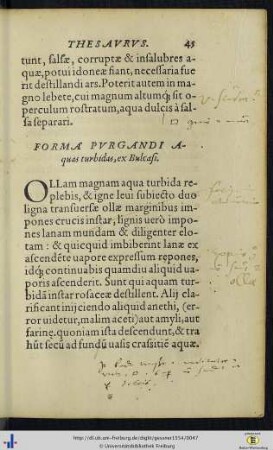 THESAVRVS. 45
tunt, salsæ, corruptæ & insalubres a-
quæ, potui idoneæ fiant, necessaria fue
rit destillandi ars. Poterit autem in ma-
gno lebete, cui magnum altumq; sit o-
perculum rostratum, aqua dulcis à sal-
sa separari.
FORMA PVRGANDI A-
quas turbidas, ex Bulcasi.
OLLam magnam aqua turbida re
plebis, & igne leui subiecto duo
ligna transuersæ ollæ marginibus im-
pones crucis instar, lignis uerò impo-
nes lanam mundam & diligenter elo-
tam: & quicquid imbiberint lanæ ex
ascendẽte uapore expressum repones,
idq; continuabis quamdiu aliquid ua-
poris ascenderit. Sunt qui aquam tur-
bidã instar rosaceæ destillent. Alij cla-
rificant inijciendo aliquid anethi, (er-
ror uidetur, malim aceti) aut amyli, aut
farinę. quoniam ista descendunt, & tra
hũt secũ ad fundũ uasis crassitiẽ aquæ.
http://dl.ub.uni-freiburg.de/diglit/gessner1554/0047
© Universitätsbibliothek Freiburg